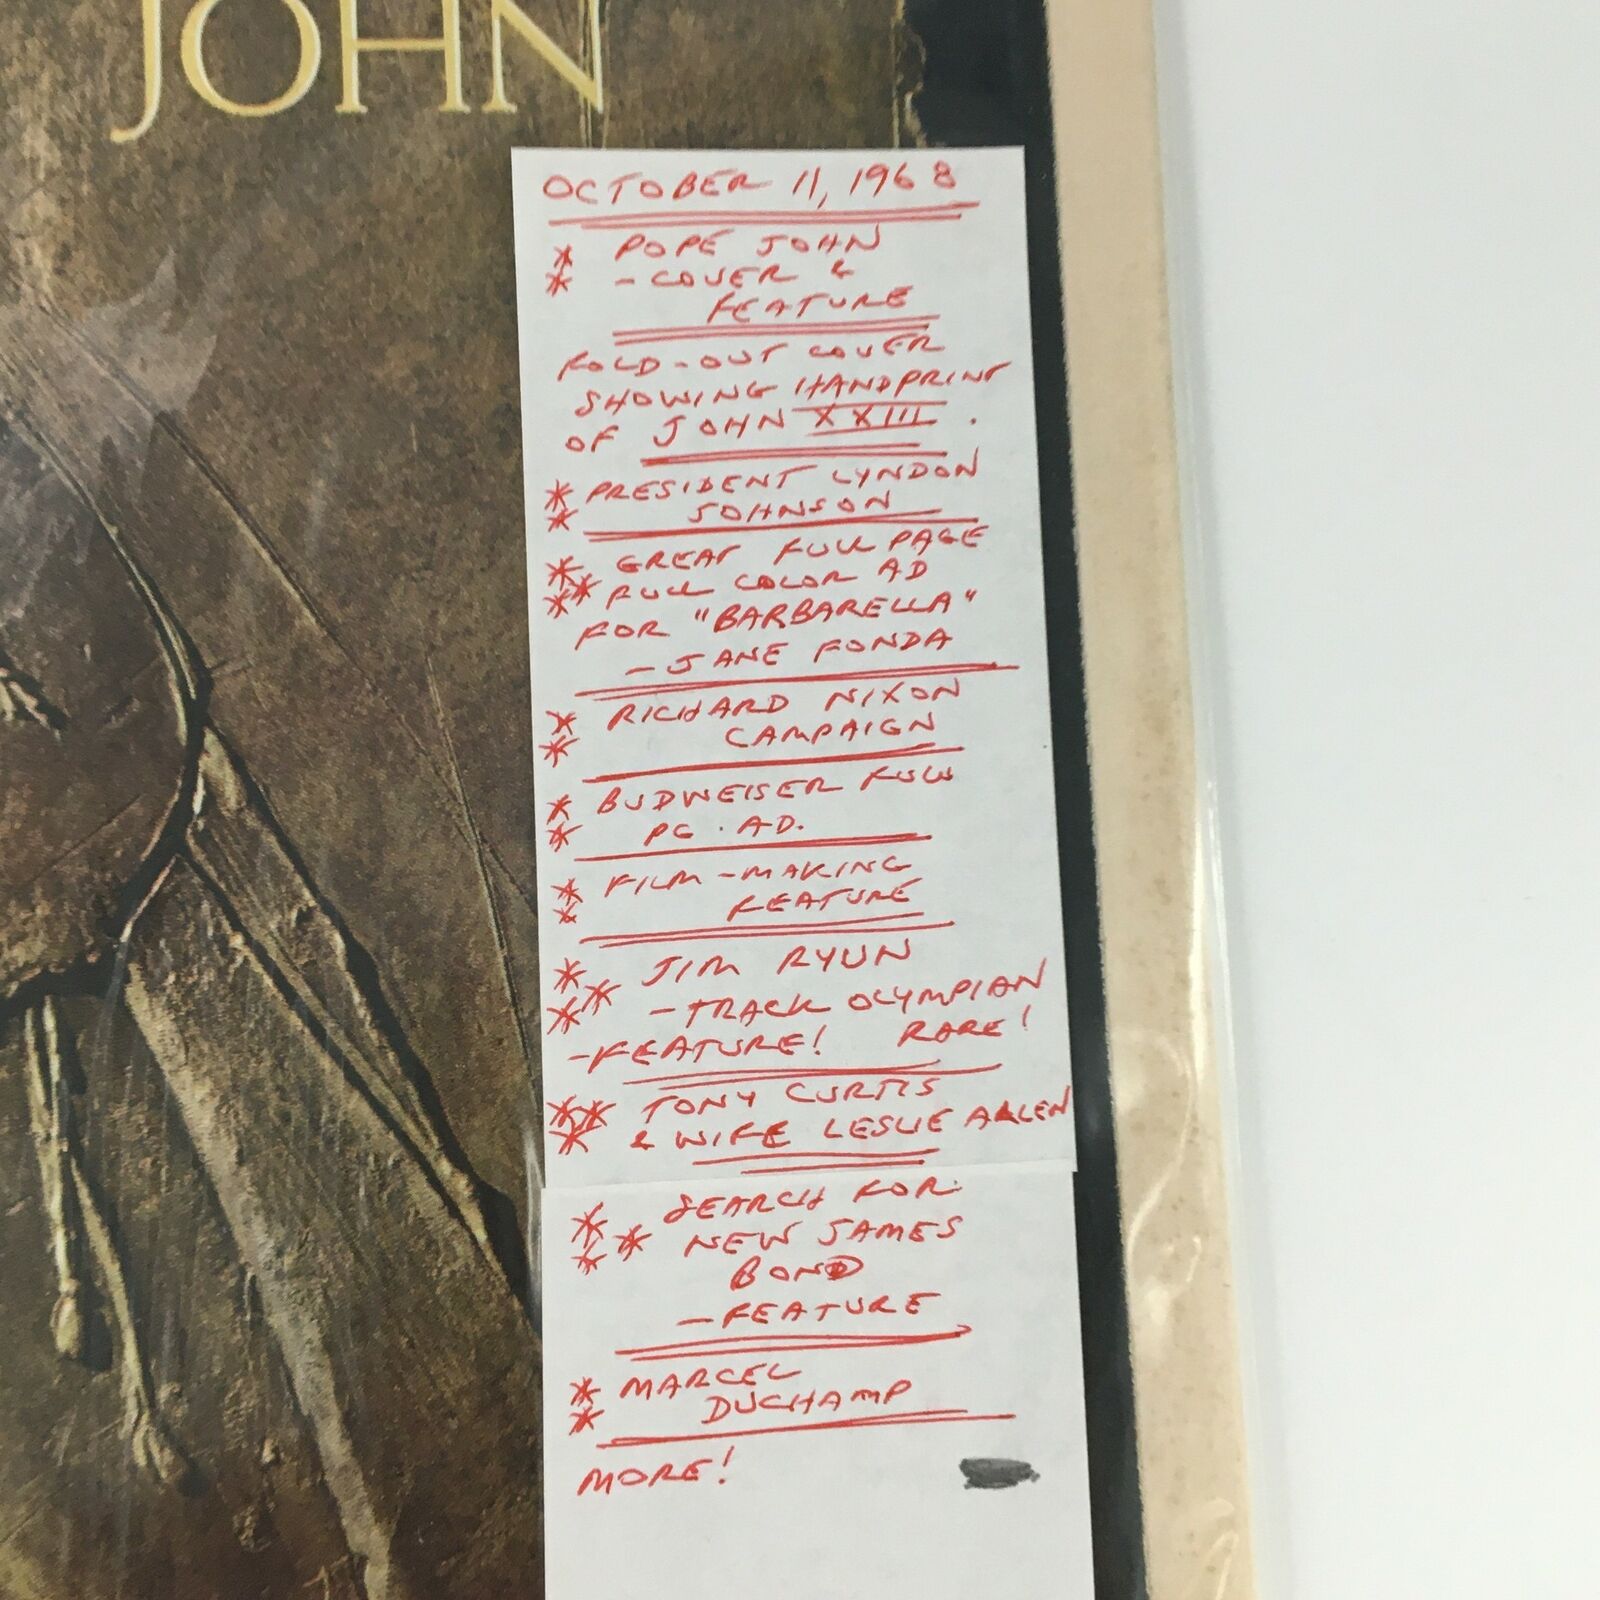 JOHN
OCTOBER 11, 1968
* POPE JOHN
* - COVER &
FEATURE
FOLD-OUT COVER
SHOWING HANDPRINT
OF JOHN XXIII.
* PRESIDENT LYNDON
* JOHNSON
* GREAT FULL PAGE
** FULL COLOR AD
FOR "BARBARELLA"
- JANE FONDA
* RICHARD NIXON
* CAMPAIGN
* BUDWEISER FULL
* PG. AD.
* FILM-MAKING
* FEATURE
* JIM RYUN
** - TRACK OLYMPIAN
- FEATURE! RARE!
** TONY CURTIS
* & WIFE LESLIE ALLEN
* SEARCH FOR
** NEW JAMES
BOND
- FEATURE
* MARCEL
* DUCHAMP
MORE!